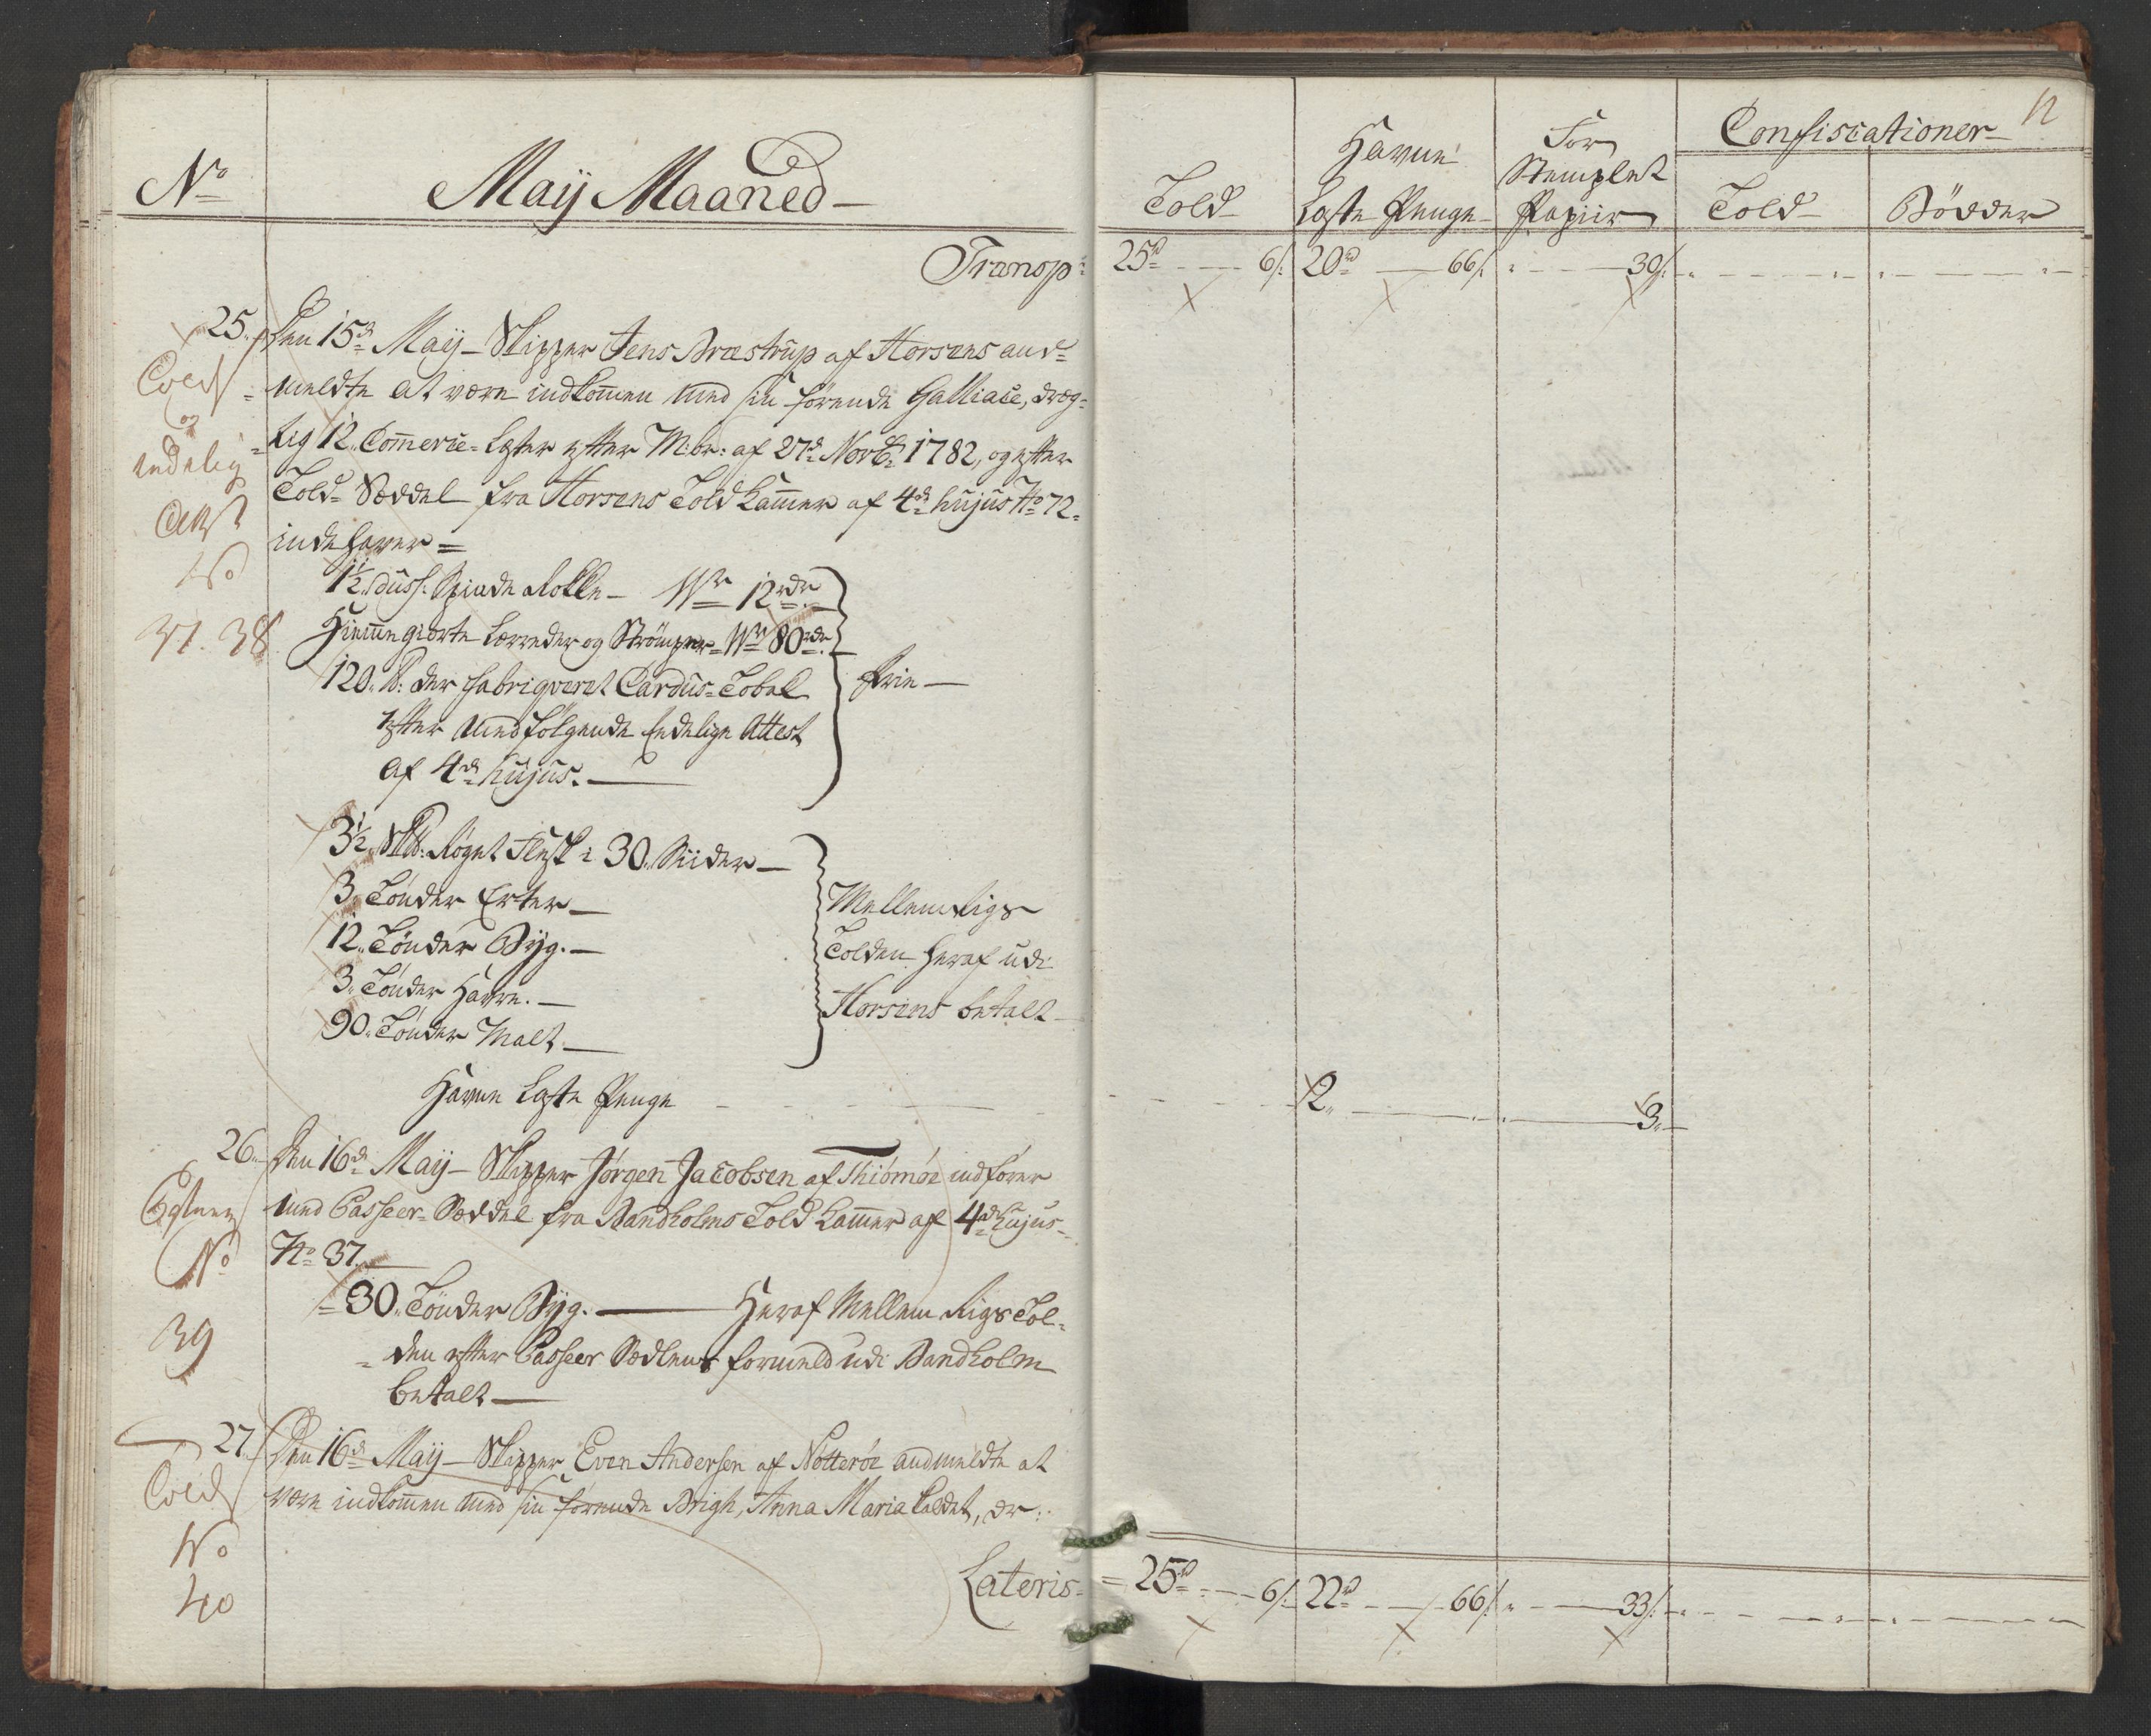 No
Maij Maaned
Transp:
25. Den 15de Maij - Skipper Jens Bræstrup af Horsens and=
meldte at være indkommen med sin førende Galliace, dræg=
=tig 12 Commerce=Læster efter M:br: af 27de Novbr 1782, og efter
Told=Seddel fra Horsens Told Kammer af 4de hujus No 72
indehaver=
Told
og
endelig
Attest
No
37. 38
1½ duss: Spinde Rokke - Wr 12rdr
Hiemmegiorte Lærreder og Strömper - Wr 80rdr
120 lb: der fabriqveret Cardus=Tobak
efter medfølgende Endelige Attest
af 4de hujus.
Frie
3½ Sklb: Røget Flesk i 30 Siider
3 Tønder Erter
12 Tønder Byg.
3 Tønder Havre.
90 Tønder Malt
Mellemrigs
Tolden heraf udi
Horsens betalt
Havne Læste Penge
26. Den 16de Maij - Skipper Jørgen Jacobsen af Thiömöe indfører
med Passeer=Seddel fra Bandholms Told Kammer af 4de hujus
No 37.
No
39
30 Tønder Byg. Heraf Mellem Rigs Tol=
=den efter Passeer Sedlens formeld udi Bandholm
betalt
27. Den 16de Maij - Skipper Even Andersen af Nötteröe andmeldte at
være indkommen med sin førende Brigh, Anna Maria kaldet, dr:
Told
No
40
Lateris
12
Told
Havne
Læste Penge
For
Stemplet
Papiir
Confiscationer
Told
Bödder
25rd 6/: 20rd 66/: 30/:
2 3
25rd 6/: 22rd 66/: 33/: